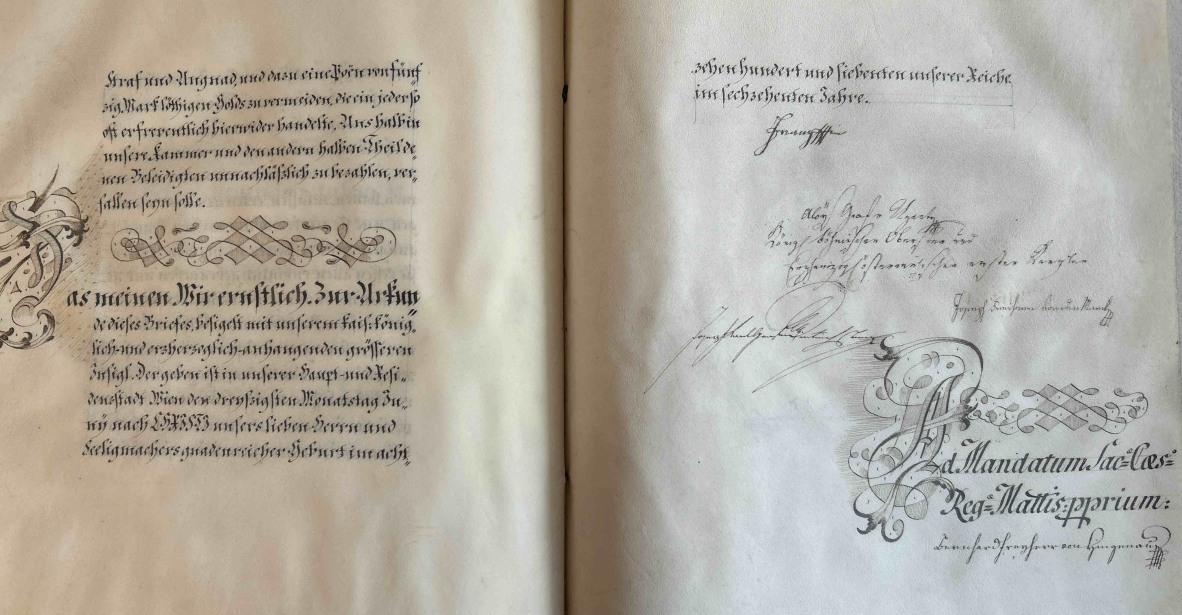 Straf und Ungnad, und dazu eine Pöen von fünf
zig Mark löthigen Golds zu vermeiden, die ein jeder so
oft er freventlich hierwider handelte, Uns halb in
unsere Kammer und den andern halben Theil de-
nen Beleidigten unnachläßlich zu bezahlen, ver-
fallen seyn solle.
Das meinen Wir ernstlich. Zur Urkun
de dieses Briefes, besigelt mit unserem kais. König
lich- und erzherzoglich-anhangenden grösseren
Insigl. Der geben ist in unserer Haupt- und Resi-
denzstadt Wien den dreyßigsten Monatstag Ju-
ny nach CHRISTI unsers lieben Herrn und
Seeligmachers gnadenreicher Geburt im acht-
zehenhundert und siebenten unserer Reiche
im sechzehenten Jahre.
Franz
Aloys Graf v Ugarte
Königl Böhmischer Oberster und
Erzherzogl österreichischer erster Kanzler
Ad Mandatum Sac=ae Caes=ae
Reg=ae Mattis pprium:
Bernhard Freyherr von Hingenau